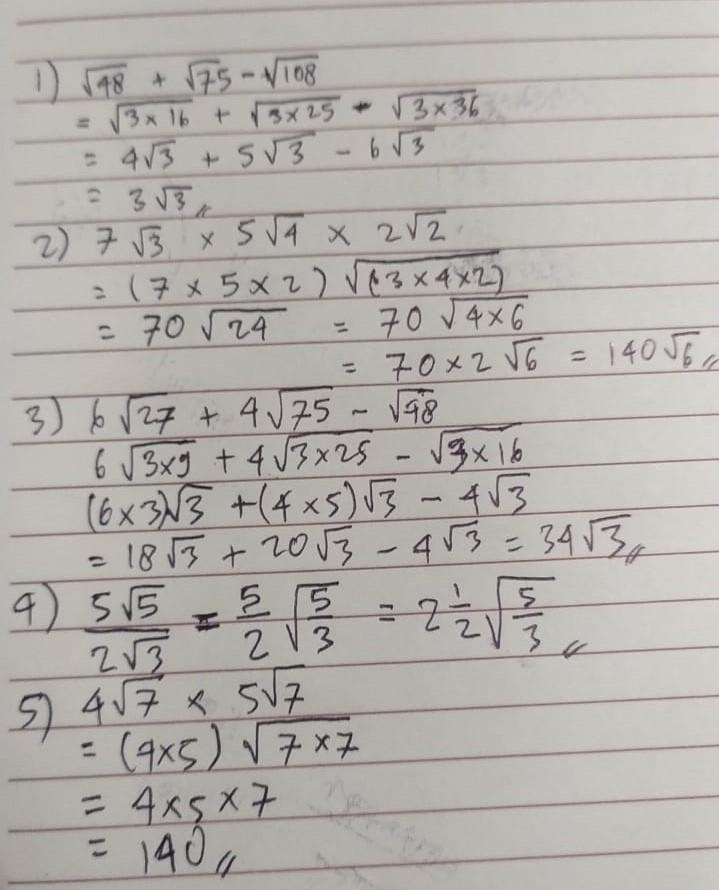 1) √48 + √75 - √108
= √3×16 + √3×25 - √3×36
= 4√3 + 5√3 - 6√3
= 3√3 //
2) 7√3 × 5√4 × 2√2
= (7×5×2) √(3×4×2)
= 70√24 = 70√4×6
= 70×2√6 = 140√6 //
3) 6√27 + 4√75 - √48
6√3×9 + 4√3×25 - √3×16
(6×3)√3 + (4×5)√3 - 4√3
= 18√3 + 20√3 - 4√3 = 34√3 //
4) 5√5/2√3 = 5/2 √5/3 = 2 1/2 √5/3 //
5) 4√7 × 5√7
= (4×5) √7×7
= 4×5×7
= 140 //